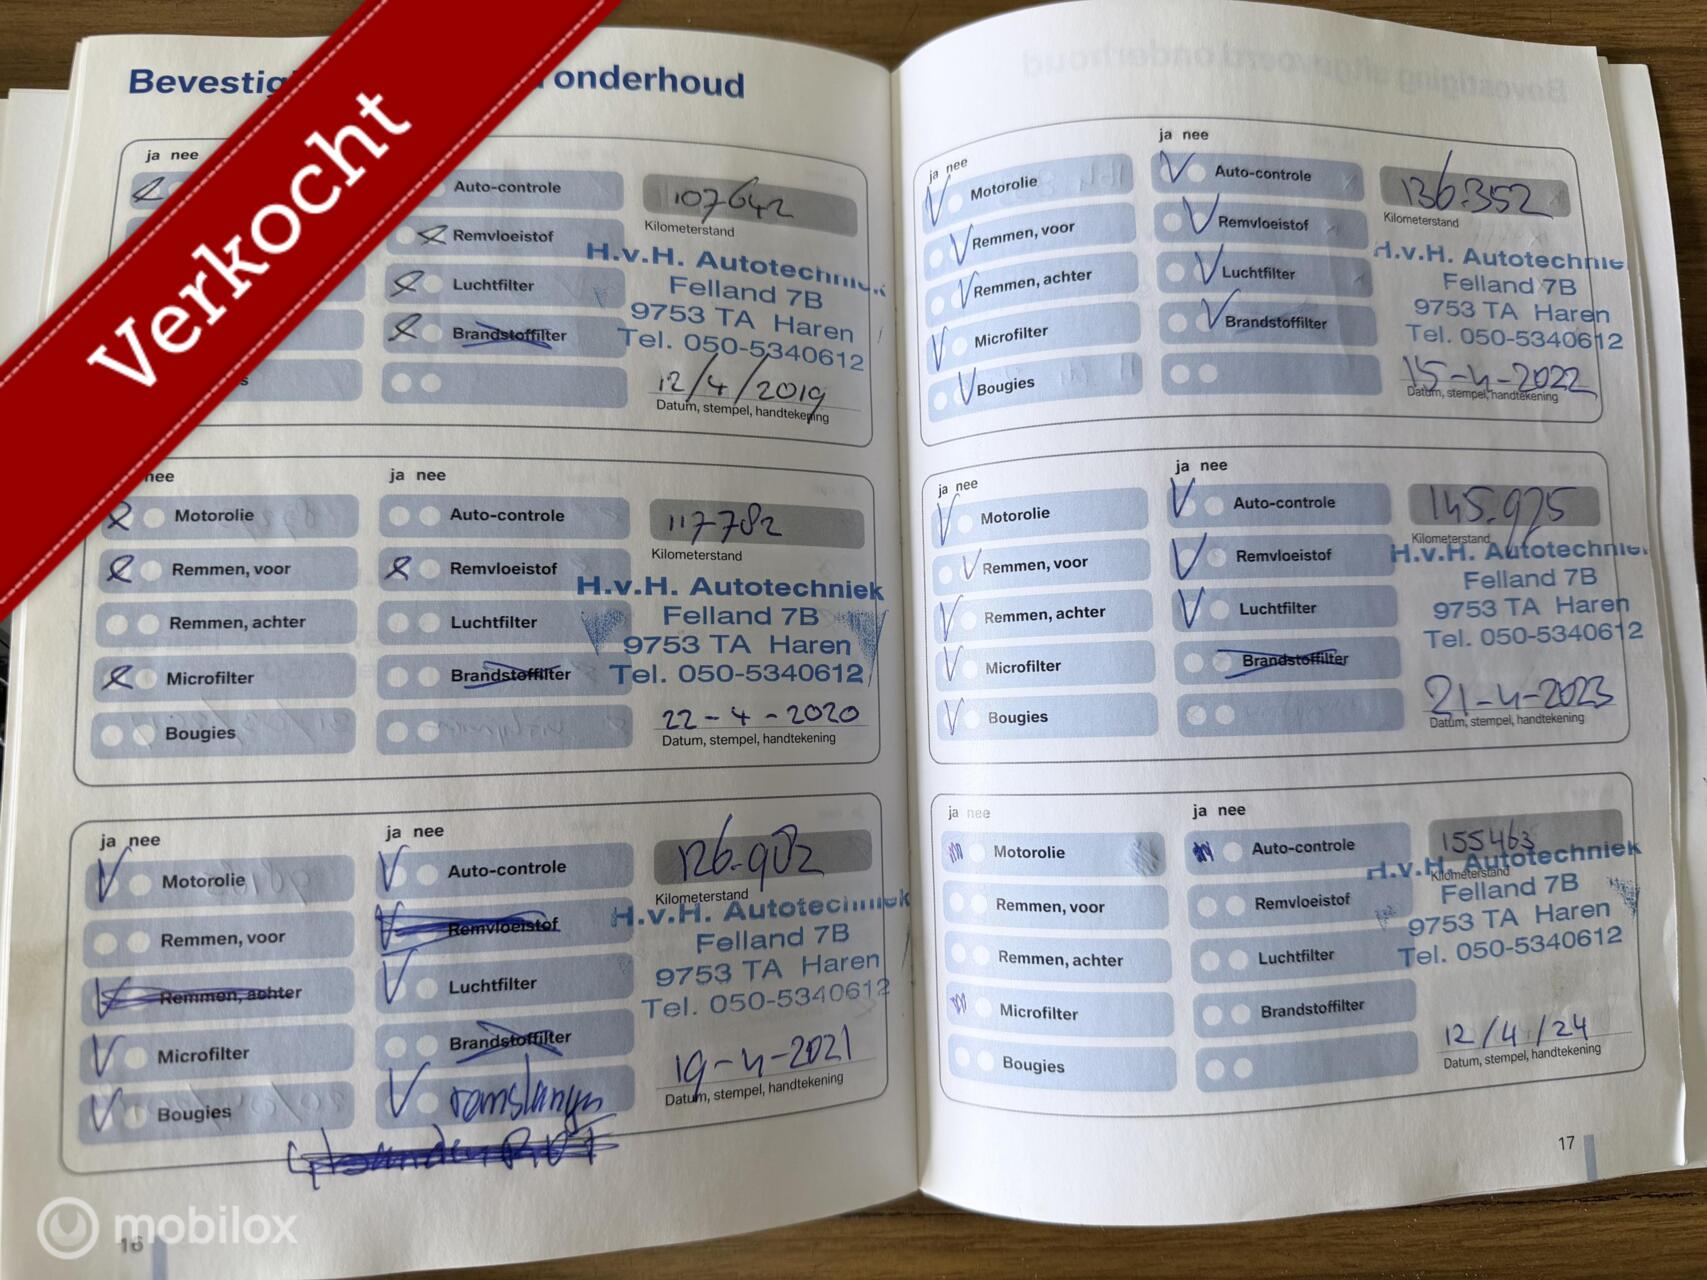 Verkocht
Bevestig onderhoud
ja nee
Auto-controle
107642
Kilometerstand
Remvloeistof
Luchtfilter
Brandstoffilter
H.v.H. Autotechniek
Felland 7B
9753 TA Haren
Tel. 050-5340612
12/4/2019
Datum, stempel, handtekening
nee
ja nee
Motorolie
Auto-controle
117782
Kilometerstand
Remmen, voor
Remvloeistof
Remmen, achter
Luchtfilter
Microfilter
Brandstoffilter
Bougies
H.v.H. Autotechniek
Felland 7B
9753 TA Haren
Tel. 050-5340612
22-4-2020
Datum, stempel, handtekening
ja nee
ja nee
Motorolie
Auto-controle
126.902
Kilometerstand
Remmen, voor
Remvloeistof
Remmen, achter
Luchtfilter
Microfilter
Brandstoffilter
Bougies
remslangen
H.v.H. Autotechniek
Felland 7B
9753 TA Haren
Tel. 050-5340612
19-4-2021
Datum, stempel, handtekening
16
ja nee
ja nee
Motorolie
Auto-controle
136.352
Kilometerstand
Remmen, voor
Remvloeistof
Remmen, achter
Luchtfilter
Microfilter
Brandstoffilter
Bougies
H.v.H. Autotechnie
Felland 7B
9753 TA Haren
Tel. 050-5340612
15-4-2022
Datum, stempel, handtekening
ja nee
ja nee
Motorolie
Auto-controle
145.925
Kilometerstand
Remmen, voor
Remvloeistof
Remmen, achter
Luchtfilter
Microfilter
Brandstoffilter
Bougies
H.v.H. Autotechnie
Felland 7B
9753 TA Haren
Tel. 050-5340612
21-4-2023
Datum, stempel, handtekening
ja nee
ja nee
Motorolie
Auto-controle
155463
Kilometerstand
Remmen, voor
Remvloeistof
Remmen, achter
Luchtfilter
Microfilter
Brandstoffilter
Bougies
H.v.H. Autotechniek
Felland 7B
9753 TA Haren
Tel. 050-5340612
12/4/24
Datum, stempel, handtekening
17
mobilox